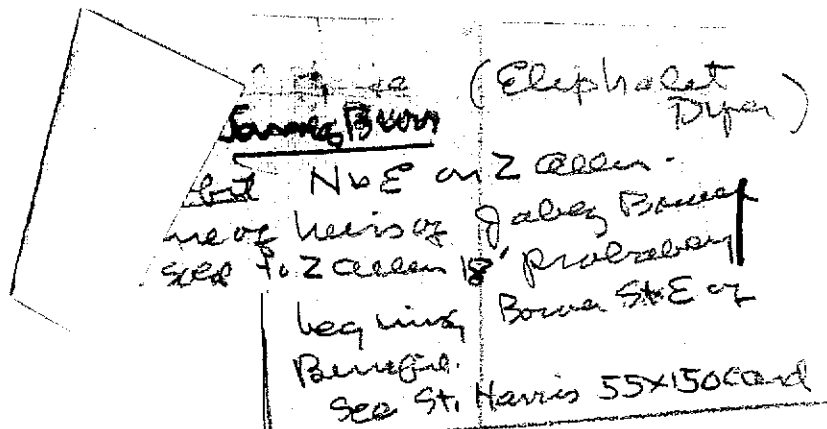 (Eliphalet
Dyer)
James Burr
N b E on Z Allen.
of heirs of Jabez Bowen
to Z Allen 18' probabey
beg ning Bowen St E of
Benefit.
See St. Harris 55x150 card